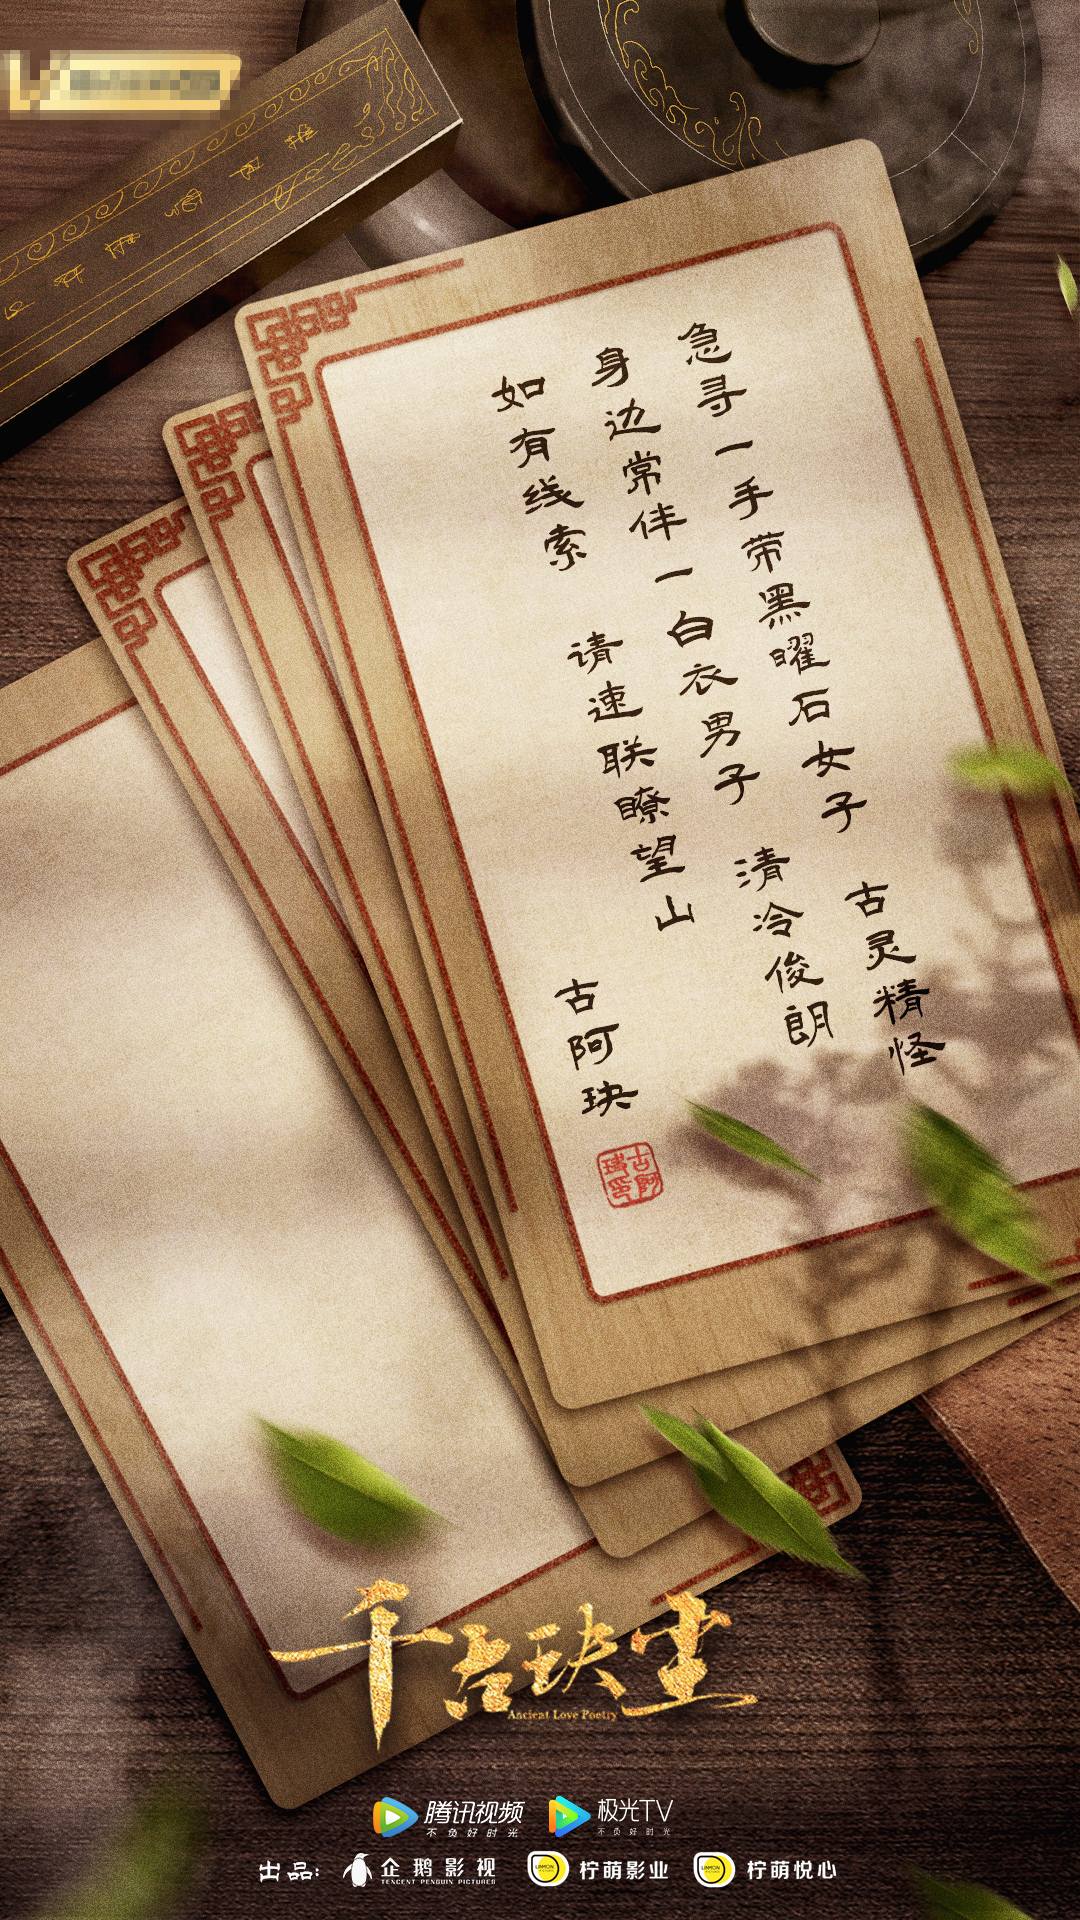 急寻一手带黑曜石女子 古灵精怪
身边常伴一白衣男子 清冷俊朗
如有线索 请速联瞭望山
古阿玦
千古玦尘
Ancient Love Poetry
腾讯视频
不负好时光
极光TV
不负好时光
出品:
企鹅影视
TENCENT PENGUIN PICTURES
柠萌影业
柠萌悦心